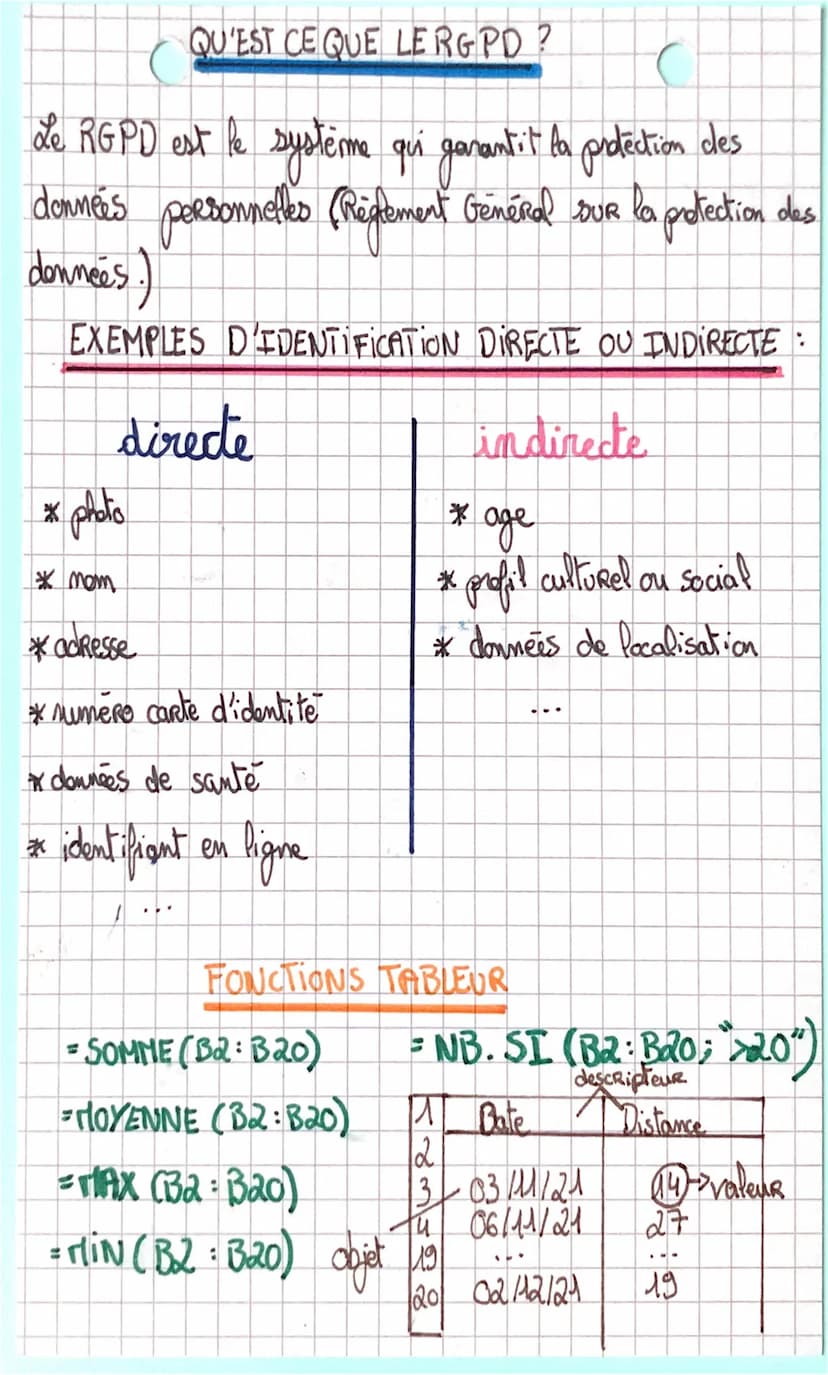 QU'EST CE QUE LE RGPD ?
Le RGPD est le système qui garantit la protection des
données personnelles (Règlement Général sur la protection des
données.)
EXEMPLES D'IDENTIFICATION DIRECTE OU INDIRECTE :
directe
* photo
* nom
* adresse
* numéro carte d'identité
* données de santé
* identifiant en ligne
...
indirecte
* age
* profil culturel ou social
* données de localisation
...
FONCTIONS TABLEUR
=SOMME(B2:B20)
=MOYENNE (B2:B20)
=MAX (B2:B20)
=MIN (B2:B20)
= NB.SI (B2:B20; ">20")
descripteur
1 Date Distance
2
3 03/11/21 14 → valeur
4 06/11/21 27
objet 19 ... ...
20 02/12/21 19